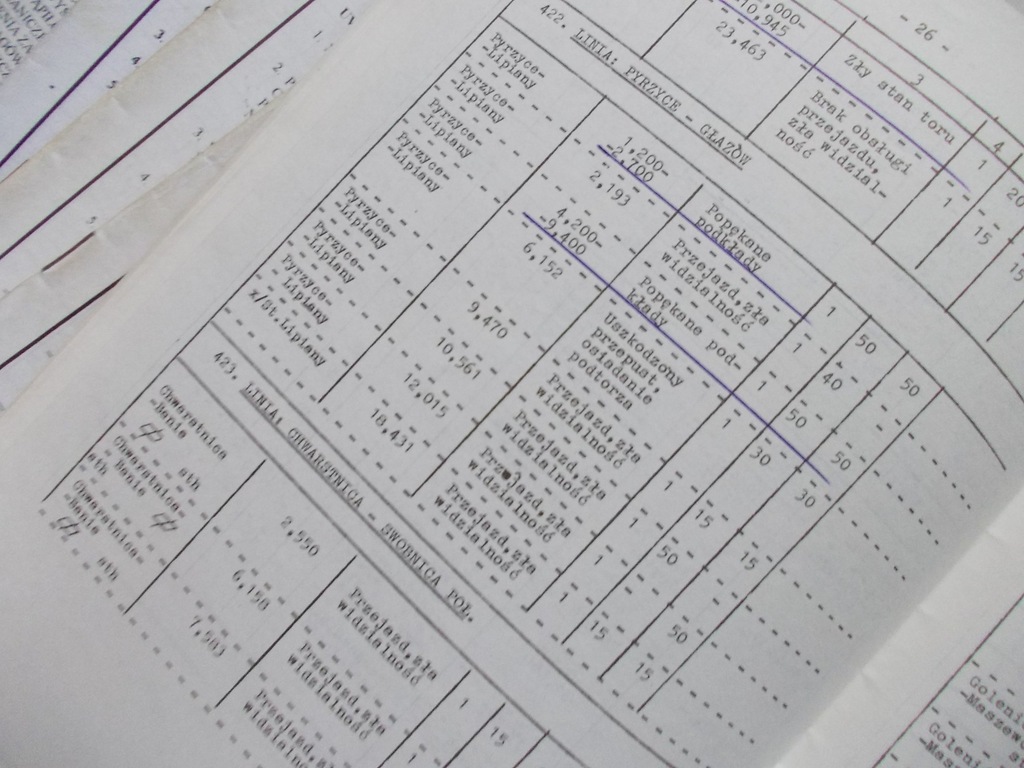 - 26 -
3
4
000-
10,945
Zły stan toru
1
20
23,463
Brak obsługi
przejazdu,
złe widzial-
ność
1
15
15
422. LINIA: PYRZYCE - GŁAZÓW
Pyrzyce-
-Lipiany
1,200-
-2,700
Popękane
podkłady
1
50
50
Pyrzyce-
-Lipiany
2,193
Przejazd,zła
widzialność
1
40
Pyrzyce-
-Lipiany
4,200-
-9,400
Popękane pod-
kłady
1
50
50
Pyrzyce-
-Lipiany
6,152
Uszkodzony
przepust,
osiadanie
podtorza
1
30
30
Pyrzyce-
-Lipiany
9,470
Przejazd,zła
widzialność
1
15
15
Pyrzyce-
-Lipiany
10,561
Przejazd,zła
widzialność
1
50
50
Pyrzyce-
Lipiany
12,015
Przejazd,zła
widzialność
1
15
15
z/St.Lipiany
18,431
Przejazd,zła
widzialność
1
423. LINIA: CHWARSTNICA - SWOBNICA POŁ.
Chwarstnica
-Banie
2,550
Przejazd,zła
widzialność
1
15
sth
Chwarstnica-
- Banie
6,158
Przejazd,zła
widzialność
1
sth
Chwarstnica-
Banie
7,503
Przejazd,zła
sth
Goleni
-Maszewo
Goleni